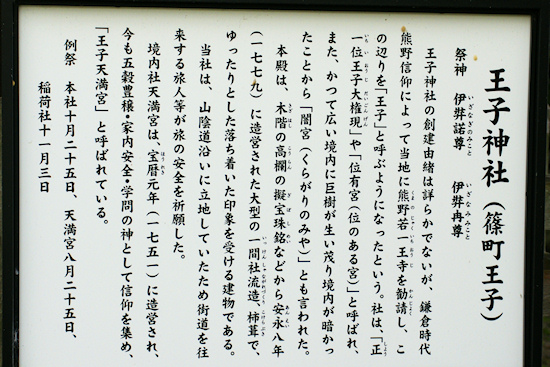 王子神社（篠町王子）
祭神　伊弉諾尊　伊弉冉尊
王子神社の創建由緒は詳らかでないが、鎌倉時代
熊野信仰によって当地に熊野若一王寺を勧請し、こ
の辺りを「王子」と呼ぶようになったという。社は、「正
一位王子大権現」や「位有宮（位のある宮）」と呼ばれ、
また、かつて広い境内に巨樹が生い茂り境内が暗かっ
たことから「闇宮（くらがりのみや）」とも言われた。
本殿は、木階の高欄の擬宝珠銘などから安永八年
（一七七九）に造営された大型の一間社流造、杮葺で、
ゆったりとした落ち着いた印象を受ける建物である。
当社は、山陰道沿いに立地していたため街道を往
来する旅人等が旅の安全を祈願した。
境内社天満宮は、宝暦元年（一七五一）に造営され、
今も五穀豊穣・家内安全・学問の神として信仰を集め、
「王子天満宮」と呼ばれている。
例祭　本社十月二十五日、天満宮八月二十五日、
稲荷社十一月三日